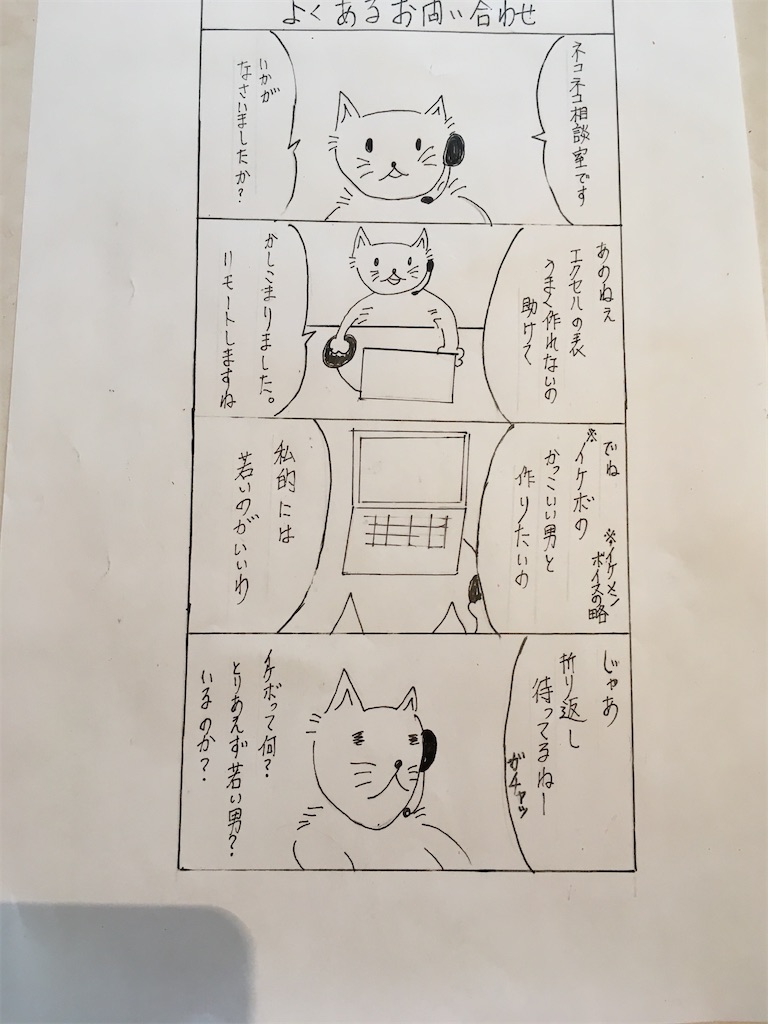 よくあるお問い合わせ
ネコネコ相談室です
いかが
なさいましたか？
あのねぇ
エクセルの表
うまく作れないの
助けて
かしこまりました。
リモートしますね
でね
※イケボの
かっこいい男と
作りたいの
※イケメン
ボイスの略
私的には
若いのがいいわ
じゃあ
折り返し
待ってるねー
ガチャッ
イケボって何？
とりあえず若い男？
いるのか？